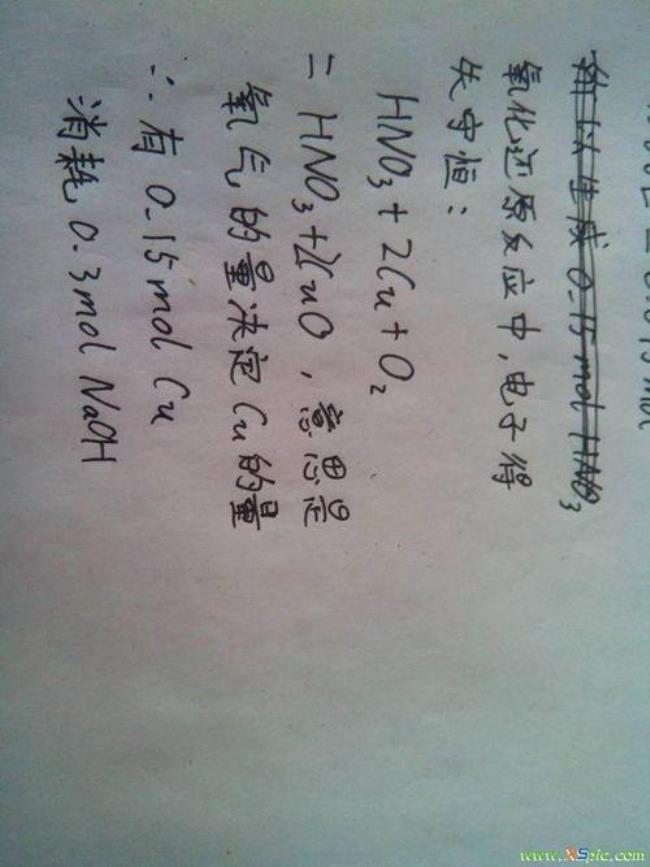 所以生成 0.15 mol HNO₃
氧化还原反应中,电子得
失守恒:
HNO₃ + 2Cu + O₂
= HNO₃ + 2CuO , 意思是
氧气的量决定 Cu 的量
∴ 有 0.15 mol Cu
消耗 0.3 mol NaOH
www.XSpic.com